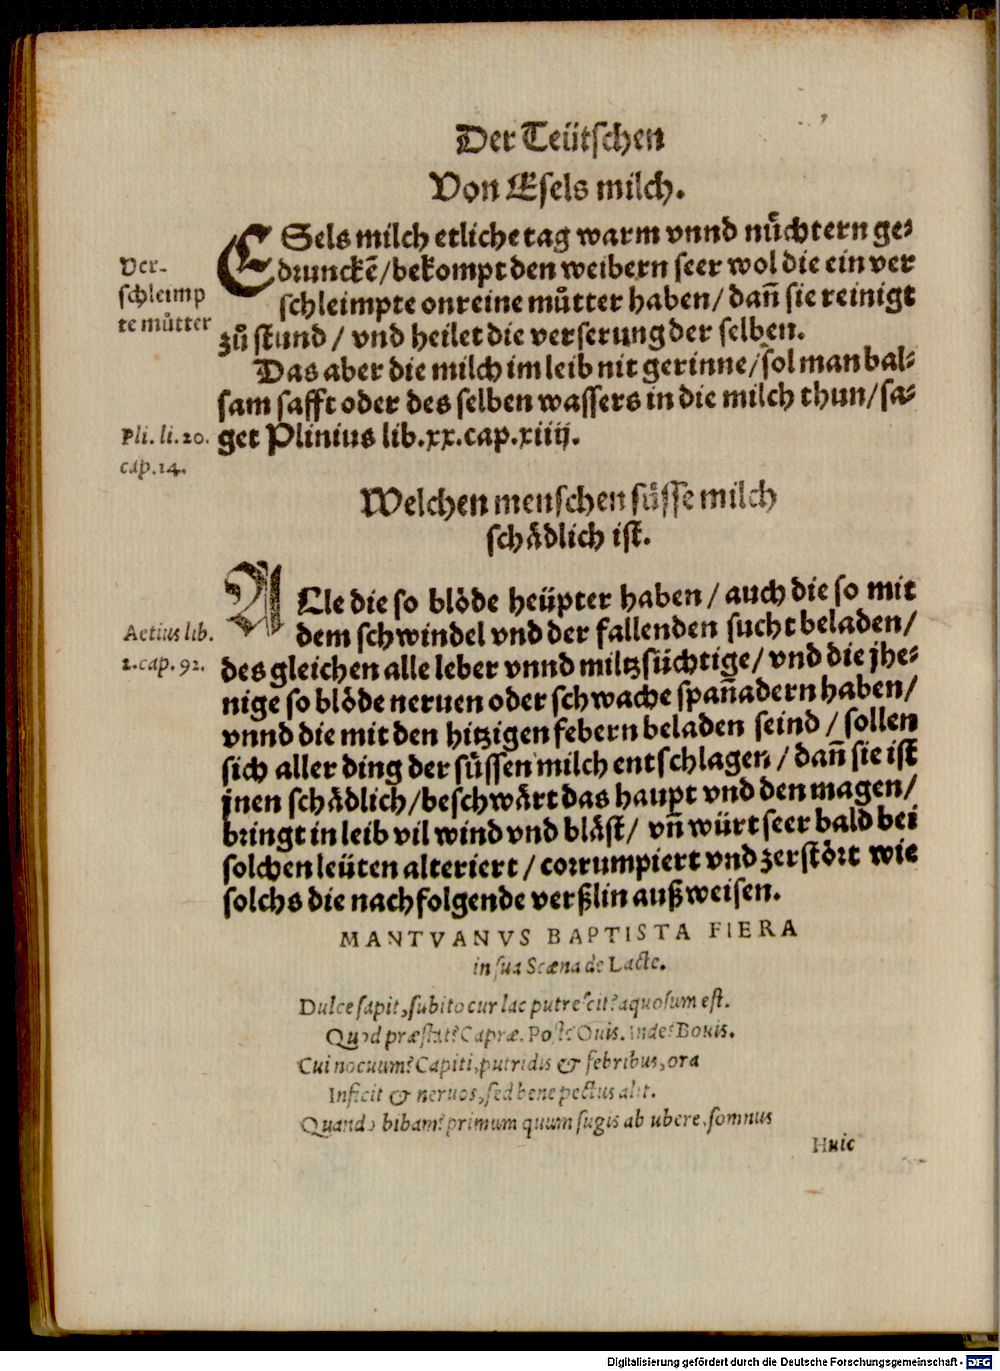 Der Teütschen
Von Esels milch.
ESels milch etliche tag warm vnnd nüchtern ge⸗
drunckẽ/bekompt den weibern seer wol die ein ver
schleimpte onreine můtter haben/ dañ sie reinigt
zů stund / vnd heilet die verserung der selben.
Ver-
schleimp
te můtter
Das aber die milch im leib nit gerinne/sol man bal⸗
sam safft oder des selben wassers in die milch thun/sa⸗
get Plinius lib.xx.cap.xiiij.
Pli. li. 20.
cap. 14.
Welchen menschen süsse milch
schädlich ist.
ALle die so blöde heüpter haben / auch die so mit
dem schwindel vnd der fallenden sucht beladen/
des gleichen alle leber vnnd miltzsüchtige/ vnd die jhe⸗
nige so blöde neruen oder schwache spañadern haben/
vnnd die mit den hitzigen febern beladen seind / sollen
sich aller ding der süssen milch entschlagen / dañ sie ist
jnen schädlich/beschwärt das haupt vnd den magen/
bringt in leib vil wind vnd bläst/ vñ würt seer bald bei
solchen leüten alteriert / corrumpiert vnd zerstört wie
solchs die nachfolgende verßlin außweisen.
Aetius lib.
2. cap. 92.
MANTVANVS BAPTISTA FIERA
in sua Scæna de Lacte.
Dulce sapit, subito cur lac putrescit? aquosum est.
Quod præstat? Capræ. Post? Ouis. inde? Bouis.
Cui nocuum? Capiti, putridis & febribus, ora
Inficit & neruos, sed bene pectus alit.
Quando bibam? primum quum sugis ab ubere. somnus
Huic
Digitalisierung gefördert durch die Deutsche Forschungsgemeinschaft - DFG